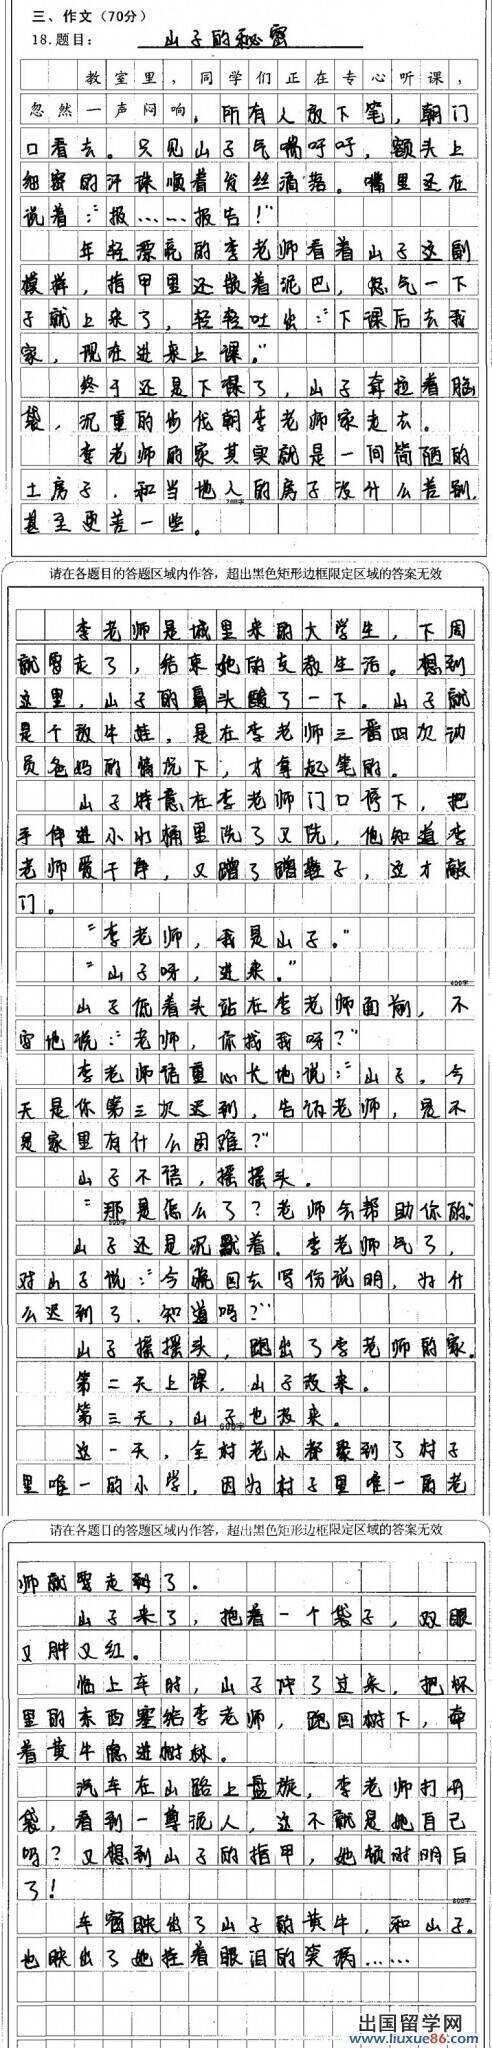 三、作文（70分）
18.题目： 山子的秘密
教室里，同学们正在专心听课，
忽然一声闷响，所有人放下笔，朝门
口看去。只见山子气喘呼呼，额头上
细密的汗珠顺着发丝滴落。嘴里还在
说着：“报……报告！”
年轻漂亮的李老师看着山子这副
模样，指甲里还嵌着泥巴，怒气一下
子就上来了，轻轻吐出：“下课后去我
家，现在进来上课。”
终于还是下课了，山子耷拉着脑
袋，沉重的步伐朝李老师家走去。
李老师的家其实就是一间简陋的
土房子，和当地人的房子没什么差别，
200字
甚至更差一些。
请在各题目的答题区域内作答，超出黑色矩形边框限定区域的答案无效
李老师是城里来的大学生，下周
就要走了，结束她的支教生活。想到
这里，山子的鼻头酸了一下。山子就
是个放牛娃，是在李老师三番四次动
员爸妈的情况下，才拿起笔的。
山子特意在李老师门口停下，把
手伸进小水桶里洗了又洗，他知道李
老师爱干净，又蹭了蹭鞋子，这才敲
门。
“李老师，我是山子。”
“山子呀，进来。”
400字
山子低着头站在李老师面前，不
安地说：“老师，你找我呀？”
李老师语重心长地说：“山子，今
天是你第三次迟到，告诉老师，是不
是家里有什么困难？”
山子不语，摇摇头。
“那是怎么了？老师会帮助你的。”
山子还是沉默着。李老师气了，
对山子说：“今晚回去写份说明，为什
么迟到了，知道吗？”
山子摇摇头，跑出了李老师的家。
第二天上课，山子没来。
第三天，山子也没来。
600字
这一天，全村老小都聚到了村子
里唯一的小学，因为村子里唯一的老
请在各题目的答题区域内作答，超出黑色矩形边框限定区域的答案无效
师就要走了。
山子来了，抱着一个袋子，双眼
又肿又红。
临上车时，山子冲了过来，把怀
里的东西塞给李老师，跑回树下，牵
着黄牛隐进树林。
汽车在山路上盘旋，李老师打开
袋，看到一尊泥人，这不就是她自己
吗？又想到山子的指甲，她顿时明白
了！
800字
车窗映出了山子的黄牛，和山子。
也映出了她挂着眼泪的笑涡……
出国留学网
www.liuxue86.com